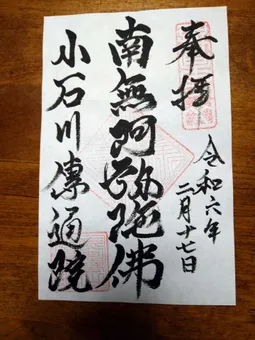 奉拝
令和六年
二月十七日
南無阿弥陀佛
小石川傳通院